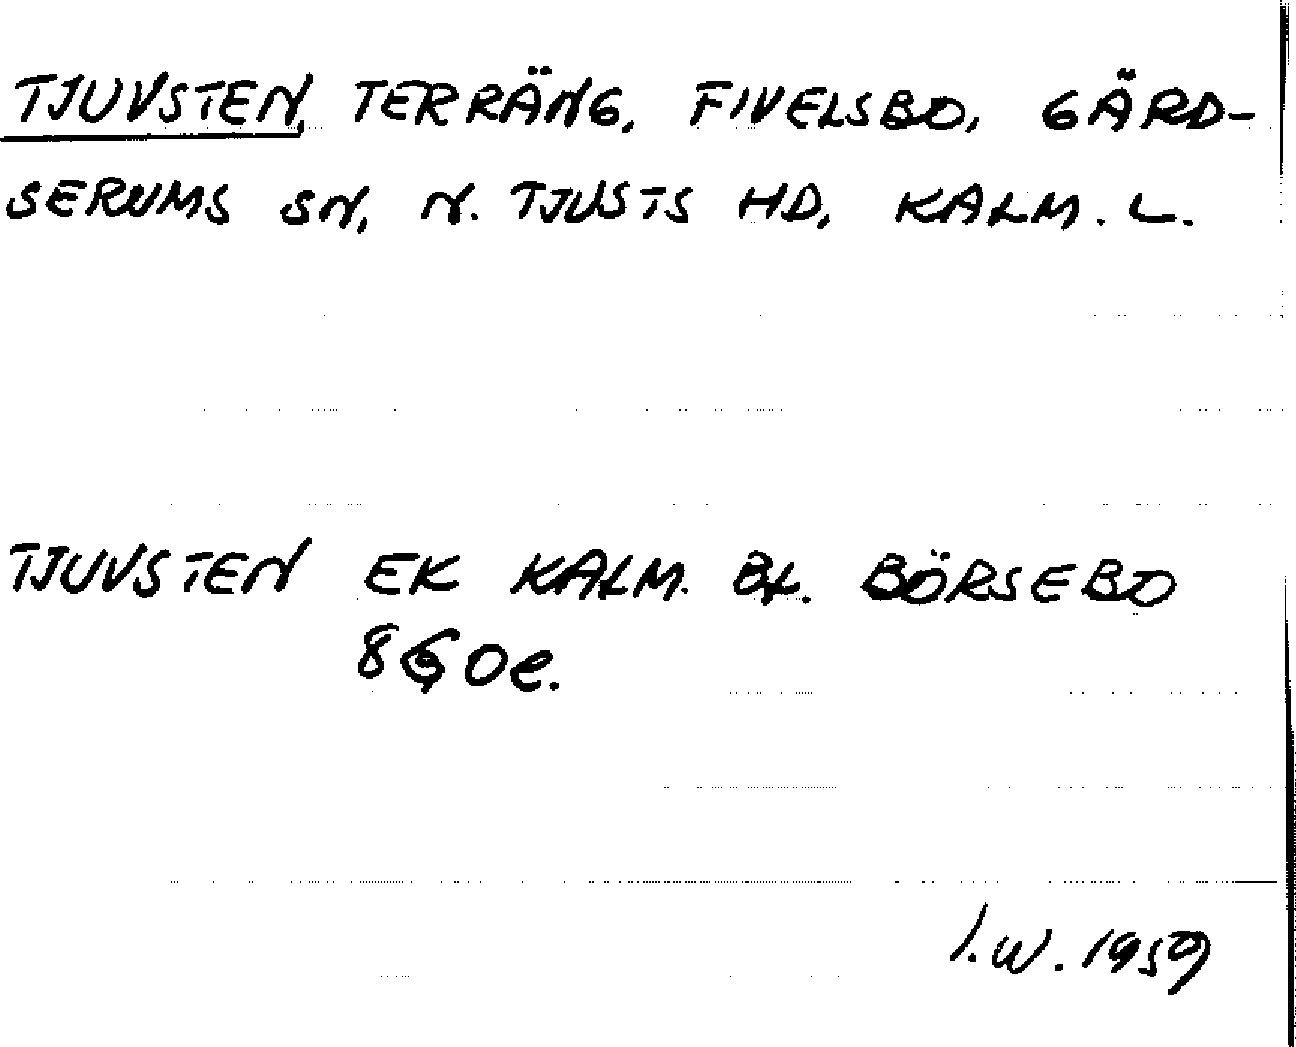 TJUVSTEN, TERRÄNG, FIVELSBO, GÄRD-
SERUMS SN, N. TJUSTS HD, KALM. L.
TJUVSTEN EK KALM. BL. BÖRSEBO
8G0e.
I.W. 1959